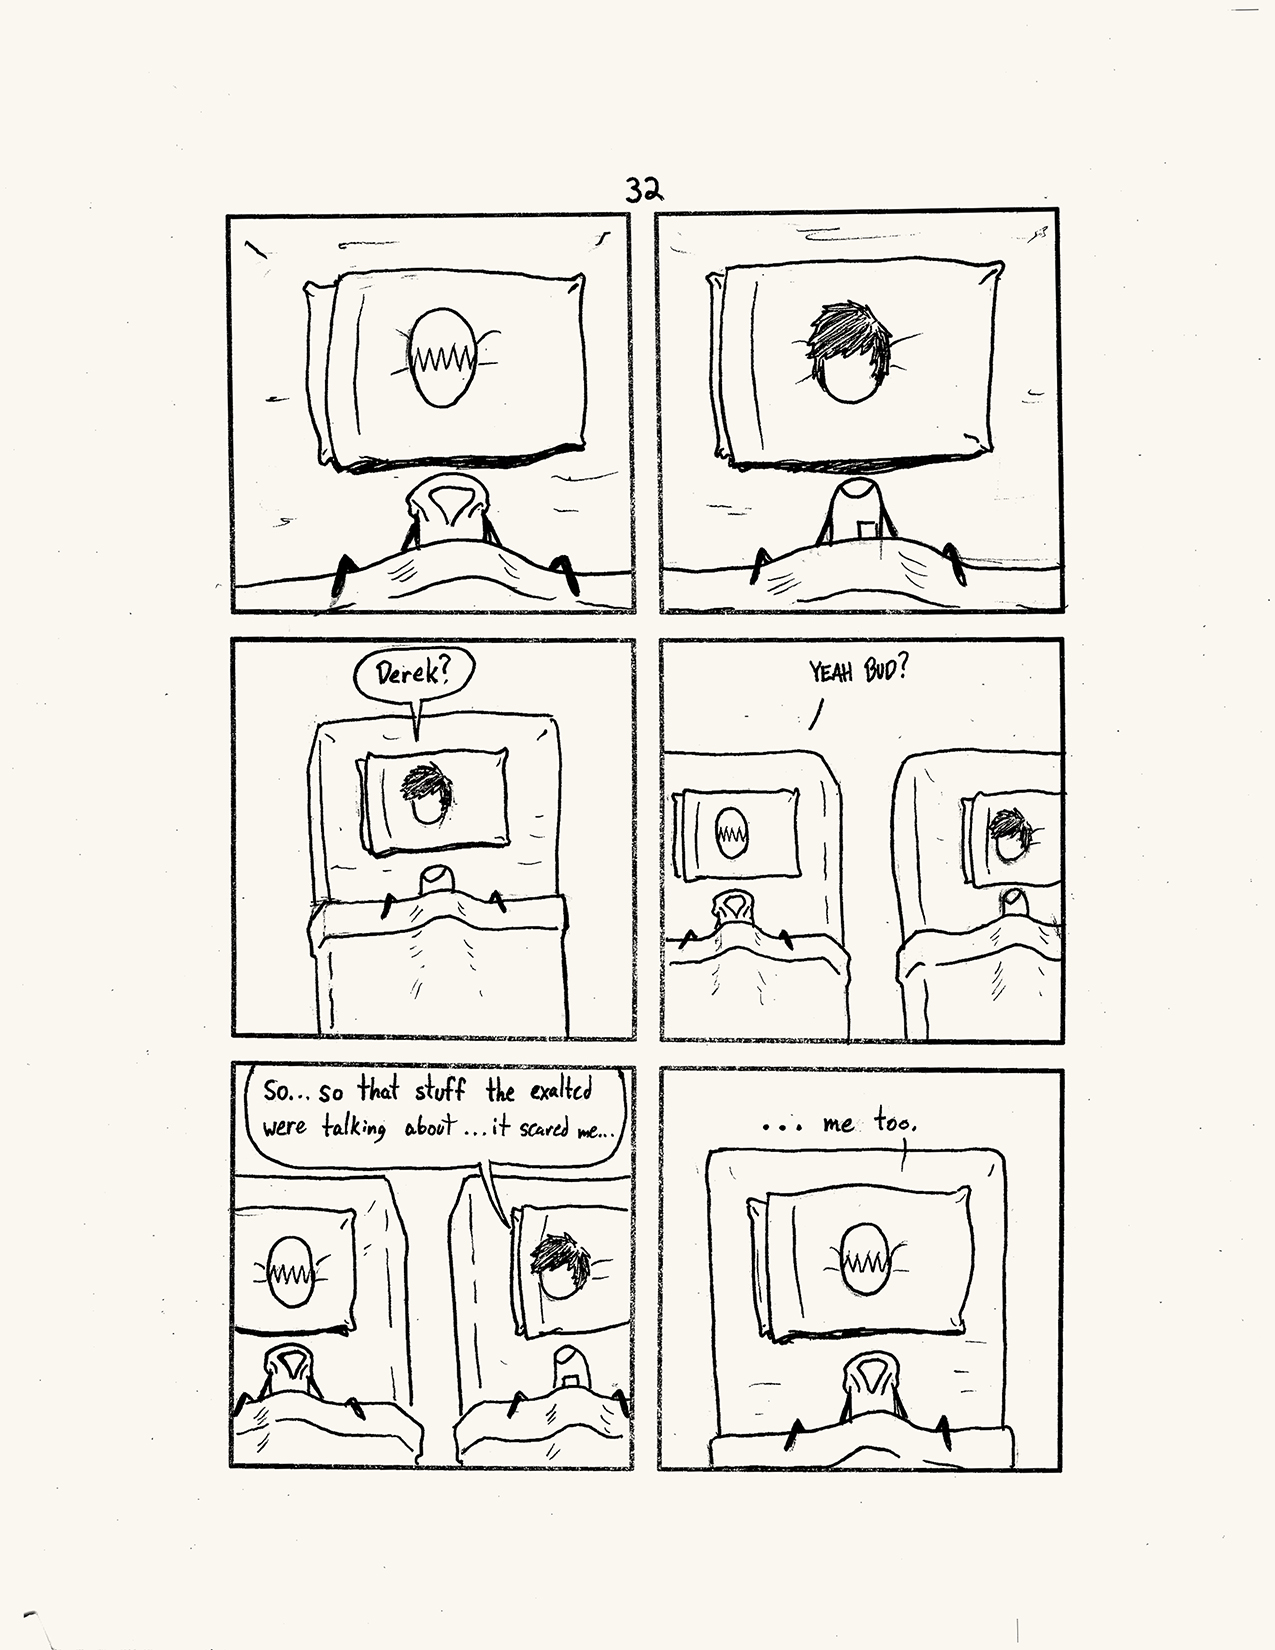 32
Derek?
YEAH BUD?
So... so that stuff the exalted
were talking about ...it scared me...
... me too.